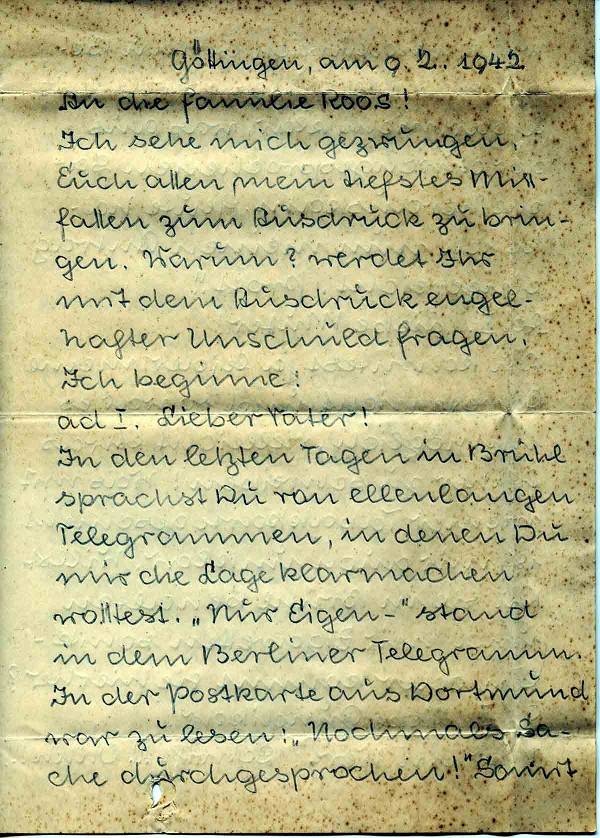 Göttingen, am 9.2.1942
An die Familie Roos!
Ich sehe mich gezwungen,
Euch allen mein tiefstes Miß-
fallen zum Ausdruck zu brin-
gen. Warum? werdet Ihr
mit dem Ausdruck engel-
hafter Unschuld fragen.
Ich beginne:
ad I. Lieber Vater!
In den letzten Tagen in Brühl
sprachst Du von ellenlangen
Telegrammen, in denen Du
mir die Lage klarmachen
wolltest. „Nur Eigen-" stand
in dem Berliner Telegramm.
In der Postkarte aus Dortmund
war zu lesen: „Nochmals Sa-
che durchgesprochen!" Somit